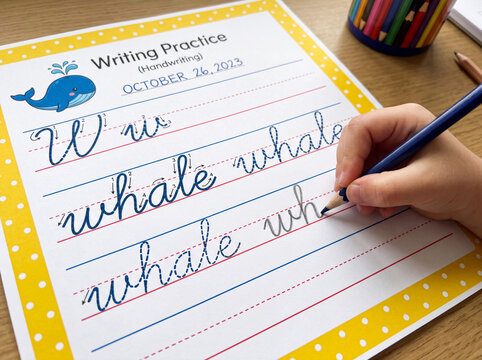 Writing Practice
(Handwriting)
OCTOBER 26, 2023
W w
whale whale
whale wh